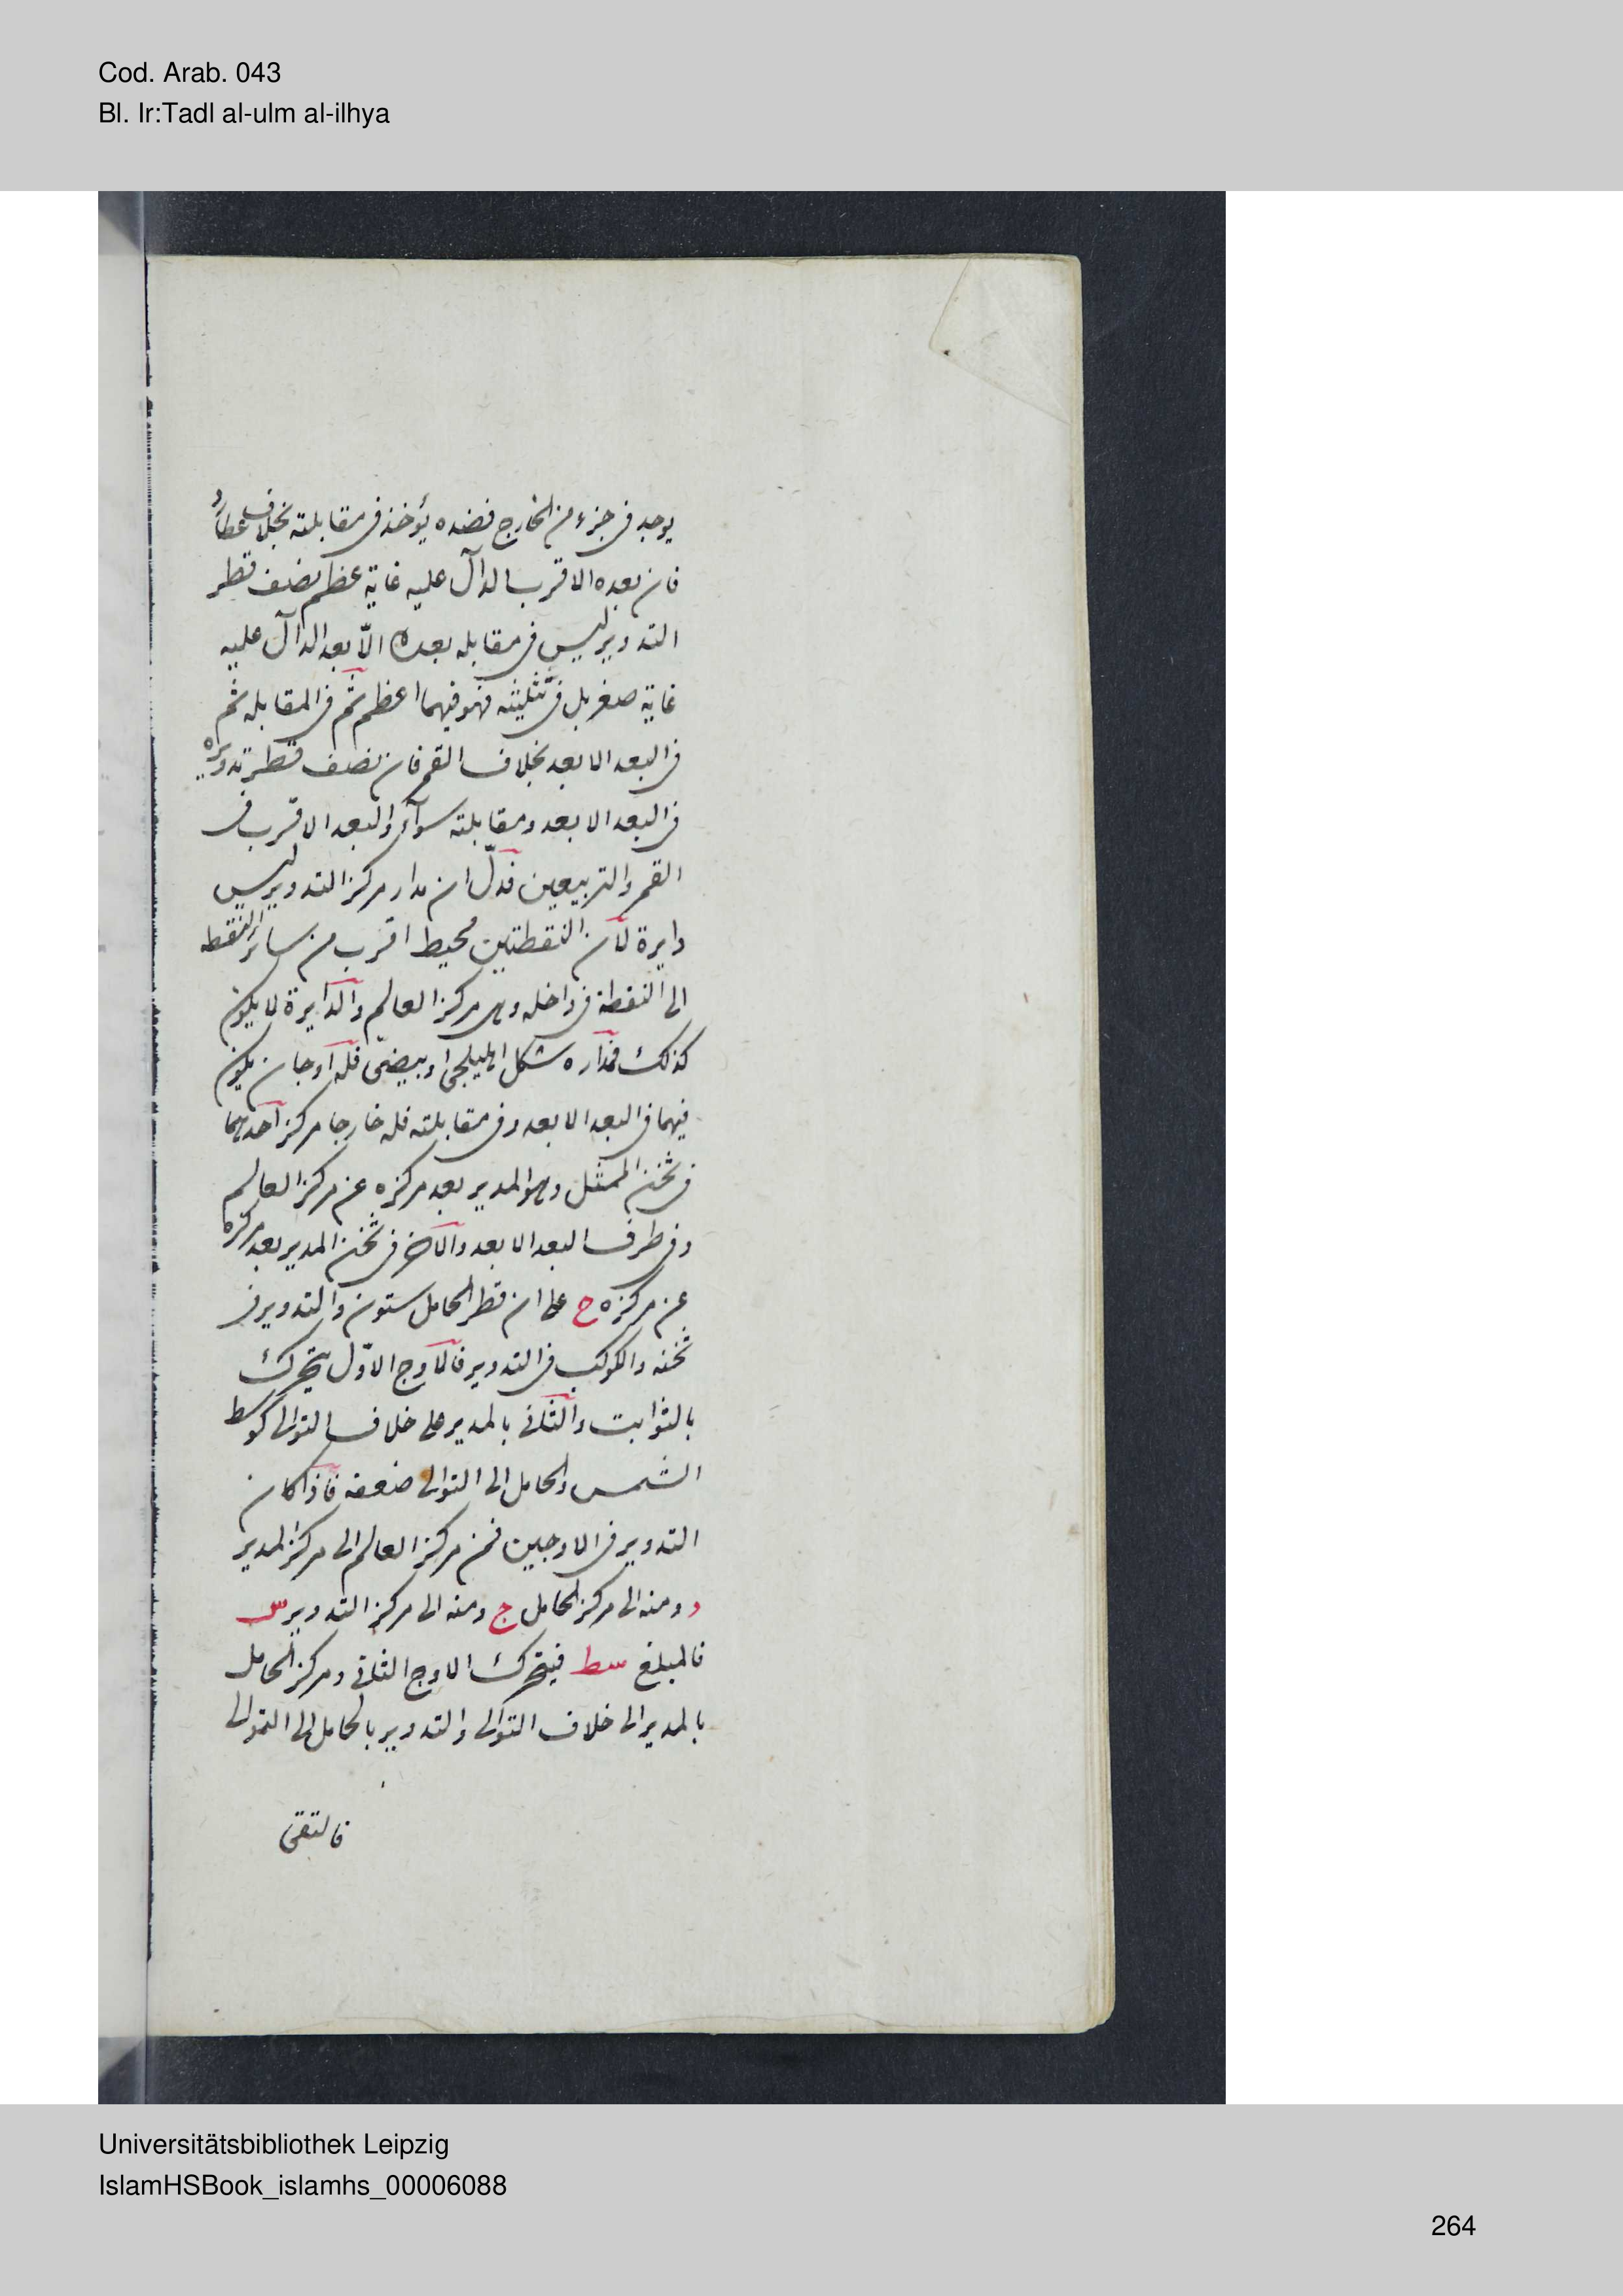 Cod. Arab. 043
Bl. Ir:Tadl al-ulm al-ilhya
يوجد فى جزء من الخارج فضده يؤخذ فى مقابلته بخلاف عطارد
فان بعده الاقرب الدآل عليه غاية عظم نصف قطر
التدوير ليس فى مقابله بعده الّا بعد الدآل عليه
غاية صغر بل فى تثليثه فهو فيهما اعظم ثم فى المقابله ثم
فى البعد الابعد بخلاف القمر فان نصف قطر تدويره
فى البعد الابعد ومقابلته سوآء والبعد الاقرب فى
القمر والتربيعين فدلّ ان مدار مركز التدوير ليس
دايرة لان النقطتين محيط اقرب من ساير النقطه
الى النقطة فى داخله وهى مركز العالم والدايرة لا يكون
كذلك فمداره شكل اهليلجى او بيضى فله اوجان يكون
فيهما فى البعد الابعد وفى مقابلته فله خارجا مركز احدهما
فى ثخن الممثل وهو المدير بعد مركزه عن مركز العالم
وفى طرف البعد الابعد والاخر فى ثخن المدير بعد مركزه
عن مركزه ج على ان قطر الحامل ستون والتدوير فى
ثخنه والكوكب فى التدوير فالاوج الاوّل يتحرك
بالثوابت والثانى بالمدير على خلاف التوالى كوسط
الشمس والحامل الى التوالى ضعفه فاذا كان
التدوير فى الاوجين فمن مركز العالم الى مركز المدير
و ومنه الى مركز الحامل ج ومنه الى مركز التدوير س
فالمبلغ سط فيتحرك الاوج الثانى ومركز الحامل
بالمدير الى خلاف التوالى والتدوير بالحامل الى التوالى
فالتقى
Universitätsbibliothek Leipzig
IslamHSBook_islamhs_00006088
264